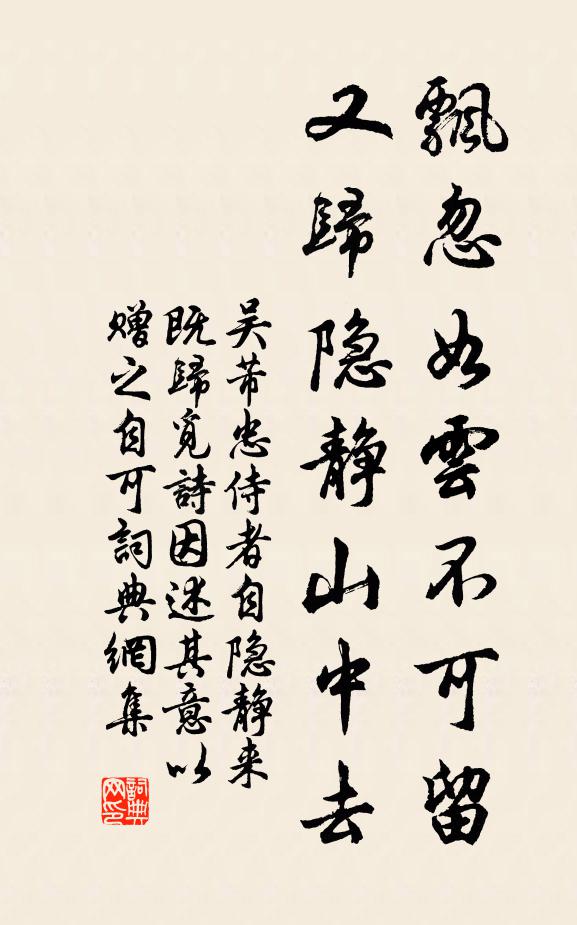 飄忽如雲不可留
又歸隐靜山中去
吴芾忠侍者自隐靜来
既歸覓詩因述其意以
赠之自可詞典網集
詞典网印